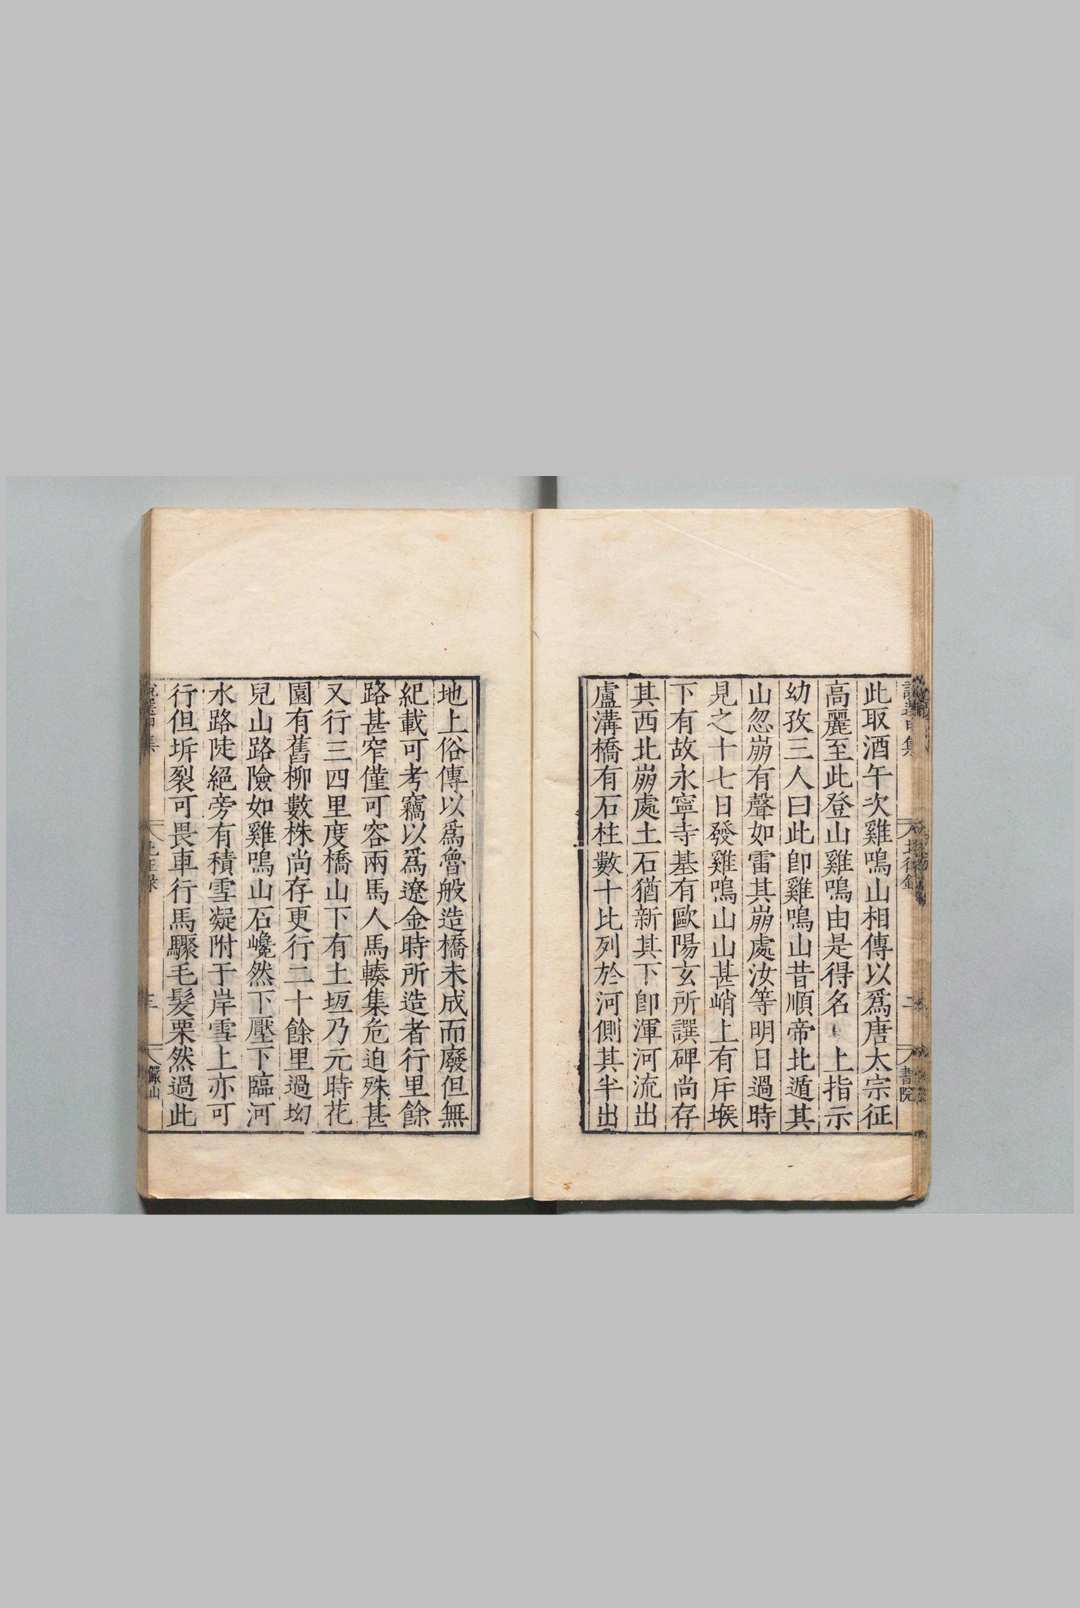 此取酒午次雞鳴山相傳以爲唐太宗征
高麗至此登山雞鳴由是得名 上指示
幼孜三人曰此卽雞鳴山昔順帝北遁其
山忽崩有聲如雷其崩處汝等明日過時
見之十七日發雞鳴山山甚峭上有斥堠
下有故永寧寺基有歐陽玄所譔碑尚存
其西北崩處土石猶新其下卽渾河流出
盧溝橋有石柱數十比列於河側其半出
地上俗傳以爲魯般造橋未成而廢但無
紀載可考竊以爲遼金時所造者行里餘
路甚窄僅可容兩馬人馬輳集危迫殊甚
又行三四里度橋山下有土垣乃元時花
園有舊柳數株尚存更行二十餘里過㘭
兒山路險如雞鳴山石巉然下壓下臨河
水路陡絕旁有積雪凝附于岸雪上亦可
行但坼裂可畏車行馬驟毛髮栗然過此